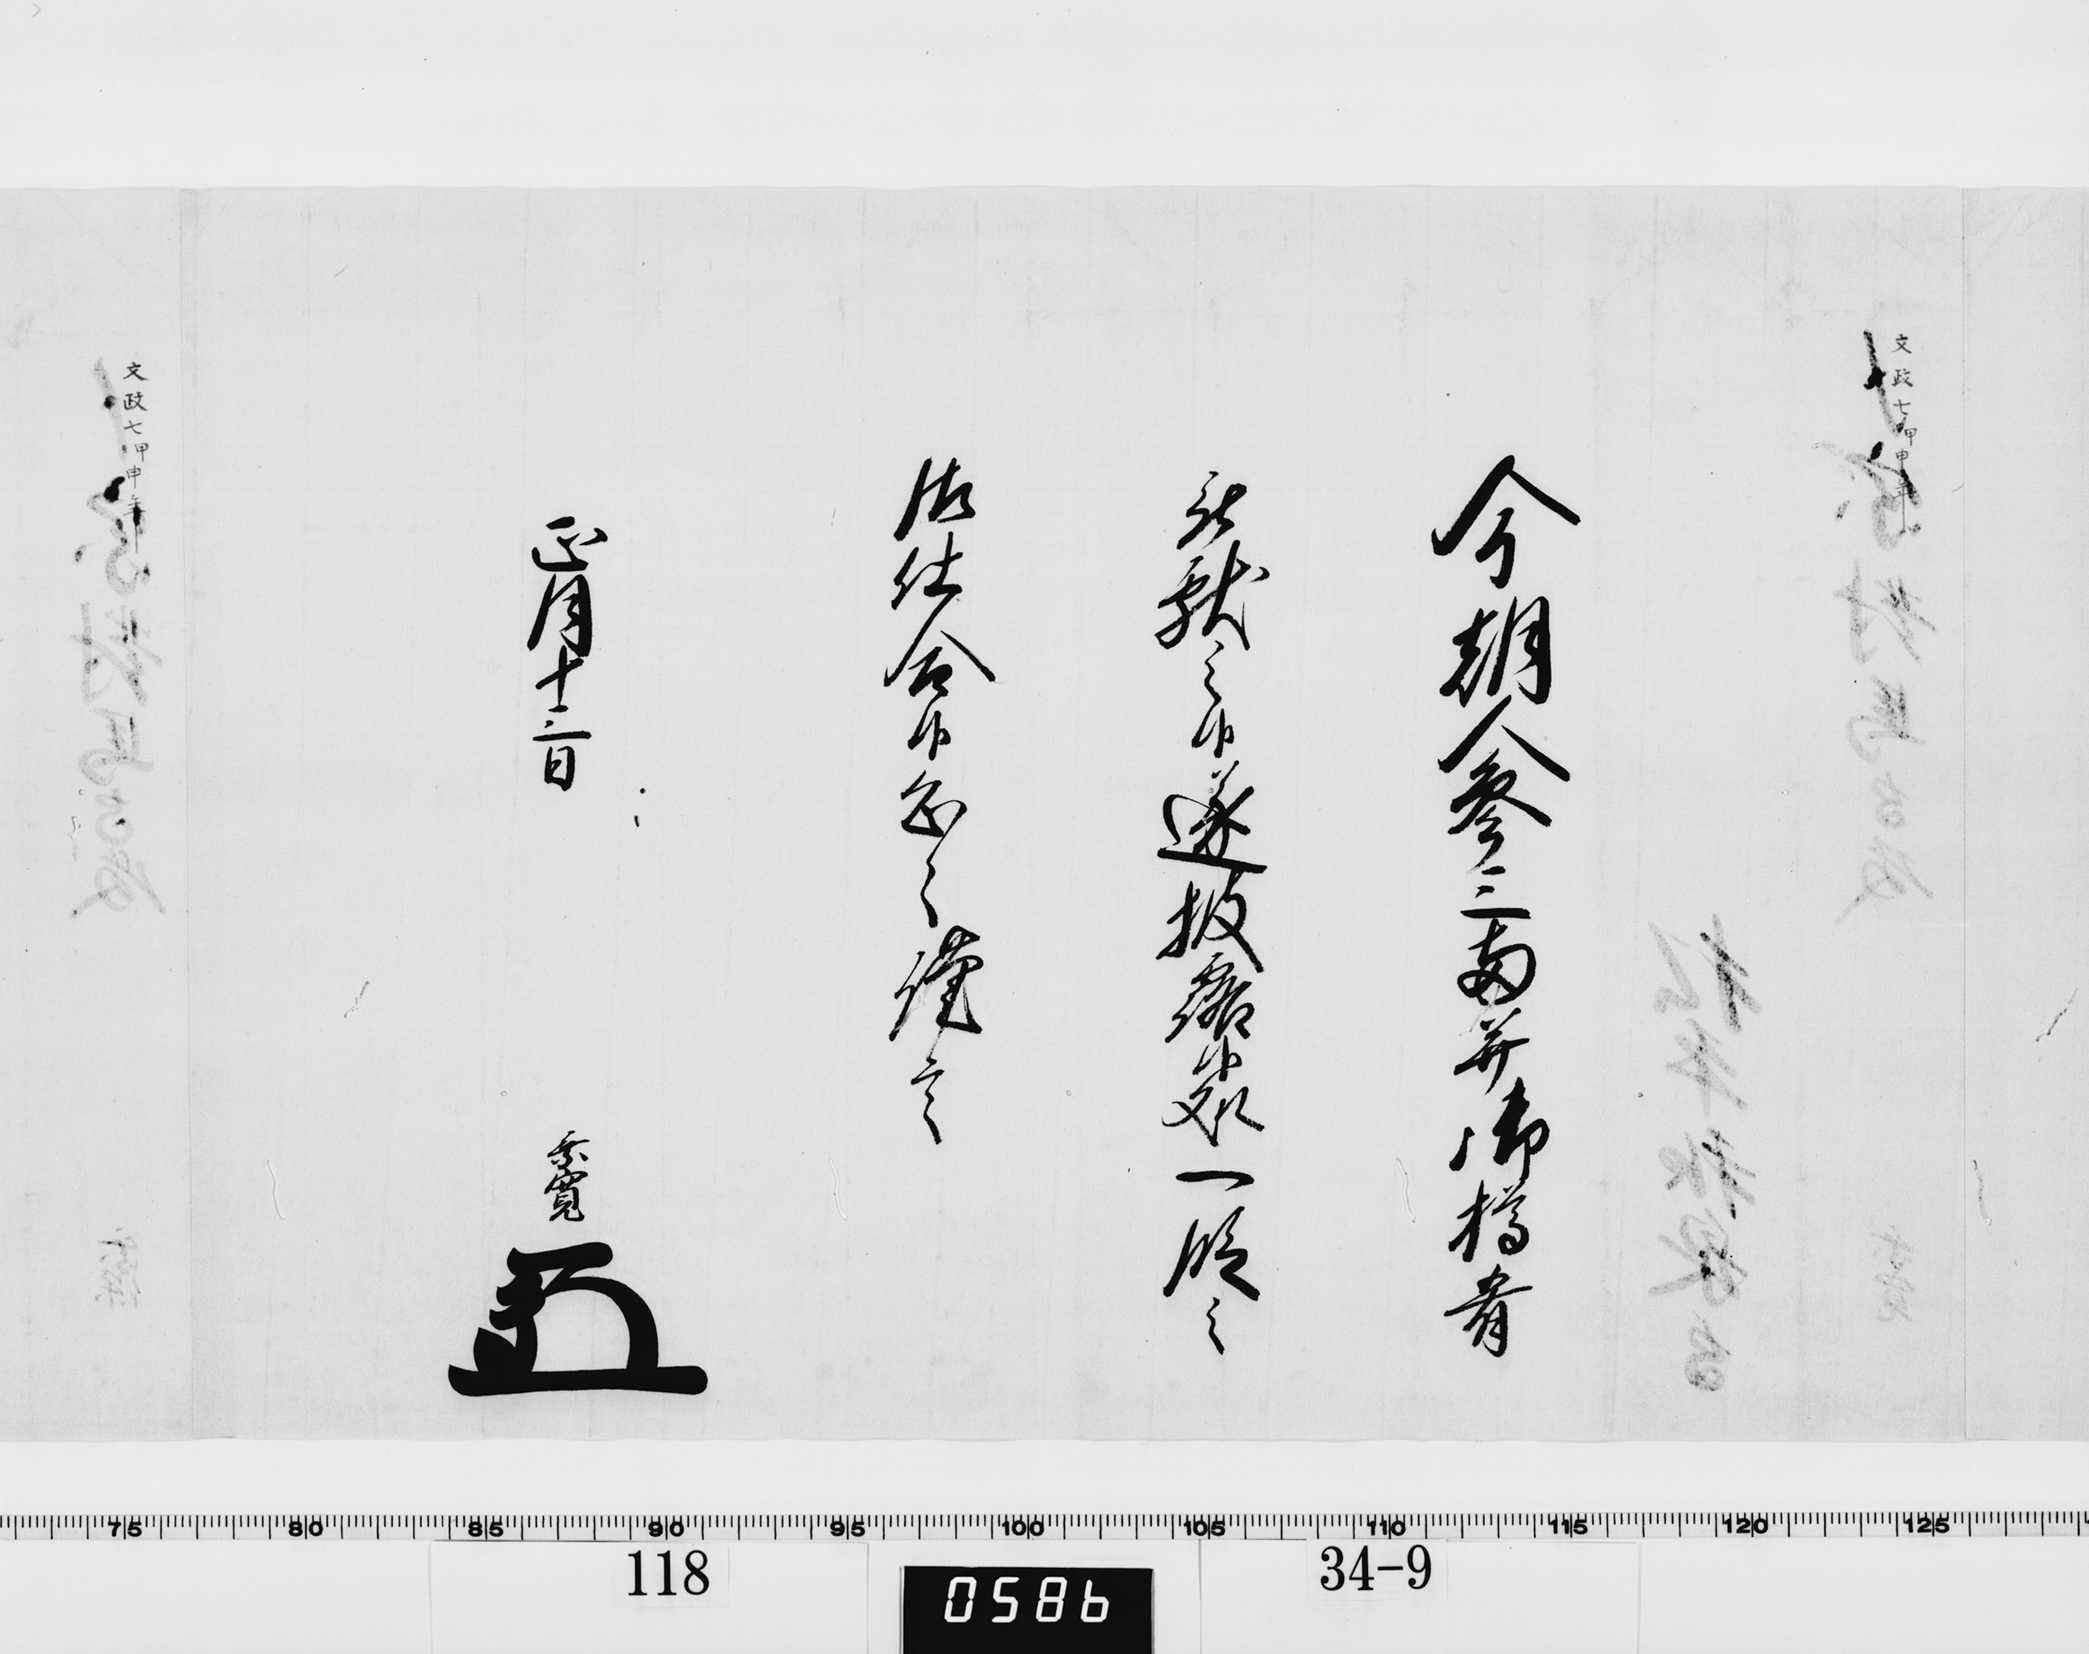 文政七甲申年
今朝人参三両并御樽肴
被献之候遂披露候処一段之
御仕合候恐々謹言
正月十三日
乗寛
文政七甲申年
75 80 85 90 95 100 105 110 115 120 125
118
0586
34-9